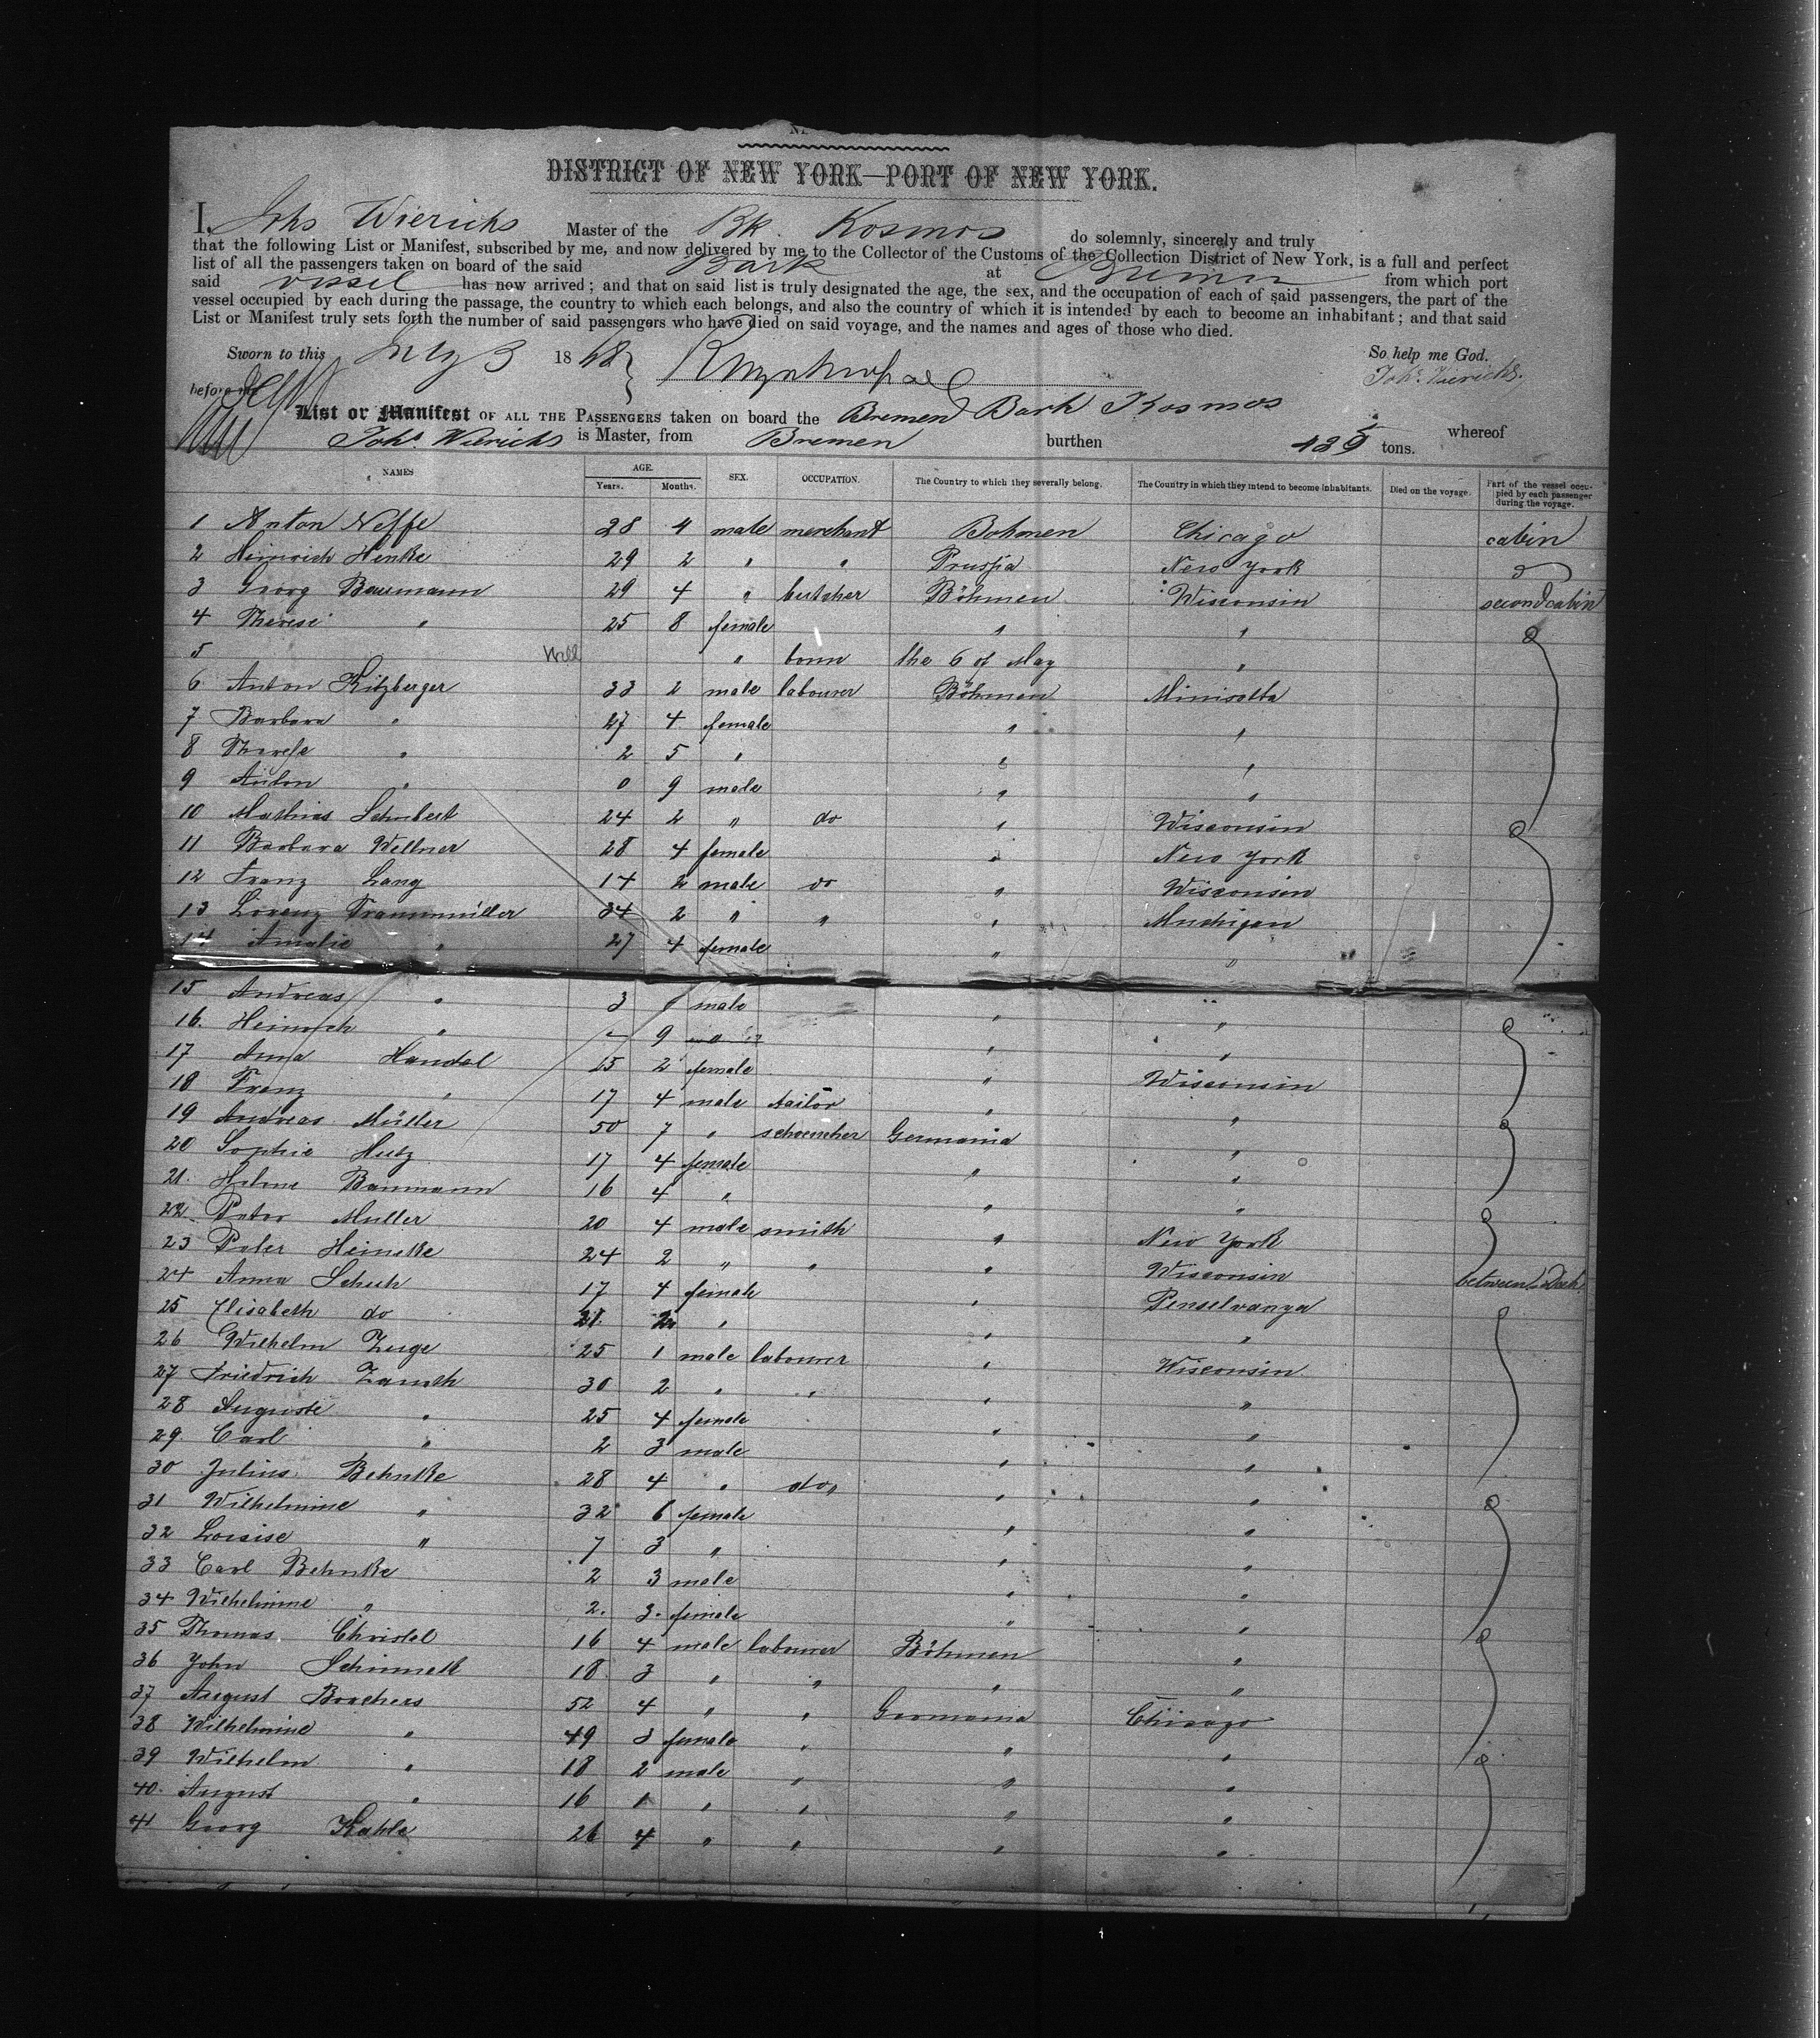 DISTRICT OF NEW YORK—PORT OF NEW YORK.
I, Johs Wierichs Master of the Bk. Kosmos do solemnly, sincerely and truly
that the following List or Manifest, subscribed by me, and now delivered by me to the Collector of the Customs of the Collection District of New York, is a full and perfect
list of all the passengers taken on board of the said Bark at Bremen from which port
said vessel has now arrived; and that on said list is truly designated the age, the sex, and the occupation of each of said passengers, the part of the
vessel occupied by each during the passage, the country to which each belongs, and also the country of which it is intended by each to become an inhabitant; and that said
List or Manifest truly sets forth the number of said passengers who have died on said voyage, and the names and ages of those who died.
Sworn to this July 3 1868 So help me God.
before me Johs. Wierichs.
List or Manifest OF ALL THE PASSENGERS taken on board the Bremen Bark Kosmos
whereof
Johs Wierichs is Master, from Bremen burthen 439 tons.
NAMES AGE. Years. Months. SEX. OCCUPATION. The Country to which they severally belong. The Country in which they intend to become inhabitants. Died on the voyage. Part of the vessel occupied by each passenger during the voyage.
1 Anton Neffe 28 4 male merchant Bohmen Chicago cabin
2 Heinrich Henke 29 2 " " Prussia New York
3 Georg Baumann 29 4 " butcher Böhmen Wisconsin second cabin
4 Therese " 25 8 female " "
5 " born the 6 of May "
6 Anton Kitzberger 33 2 male labourer Böhmen Minisotta
7 Barbara " 27 4 female " "
8 Therese " 2 5 " " "
9 Anton " 0 9 male " "
10 Mathias Schubert 24 2 " do " Wisconsin
11 Barbara Wellner 28 4 female " New York
12 Franz Lang 14 2 male do " Wisconsin
13 Lorenz Traummüller 34 2 " " " Muchigan
14 Amalie " 27 4 female " "
15 Andreas " 3 male " "
16. Heinrich " - 9 " "
17 Anna Handel 15 2 female " Wisconsin
18 Franz " 17 4 male tailor " "
19 Andreas Müller 50 7 " Germania "
20 Sophie Hutz 17 4 female " "
21. Helene Baumann 16 4 " " "
22. Peter Muller 20 4 male smith " New York
23 Peter Heineke 24 2 " " " Wisconsin
24 Anna Schuh 17 4 female " Penselvanya between Deck
25 Elisabeth do 21. 2 " " "
26 Wilhelm Zuge 25 1 male labourer " Wisconsin
27 Friedrich 30 2 " " " "
28 Auguste " 25 4 female " "
29 Carl " 2 3 male " "
30 Julius Behnke 28 4 " do " "
31 Wilhelmine " 32 6 female " "
32 Louise " 7 3 " " "
33 Carl Behnke 2 3 male " "
34 Wilhelmine " 2. 3. female " "
35 Thomas Christel 16 4 male labourer Böhmen "
36 John Schimmek 18 3 " " " "
37 August Brachers 52 4 " " Germania Chicago
38 Wilhelmine " 49 3 female " " "
39 Wilhelm " 18 2 male " " "
40. August " 16 1 " " " "
41 Georg Kahle 26 4 " " " "